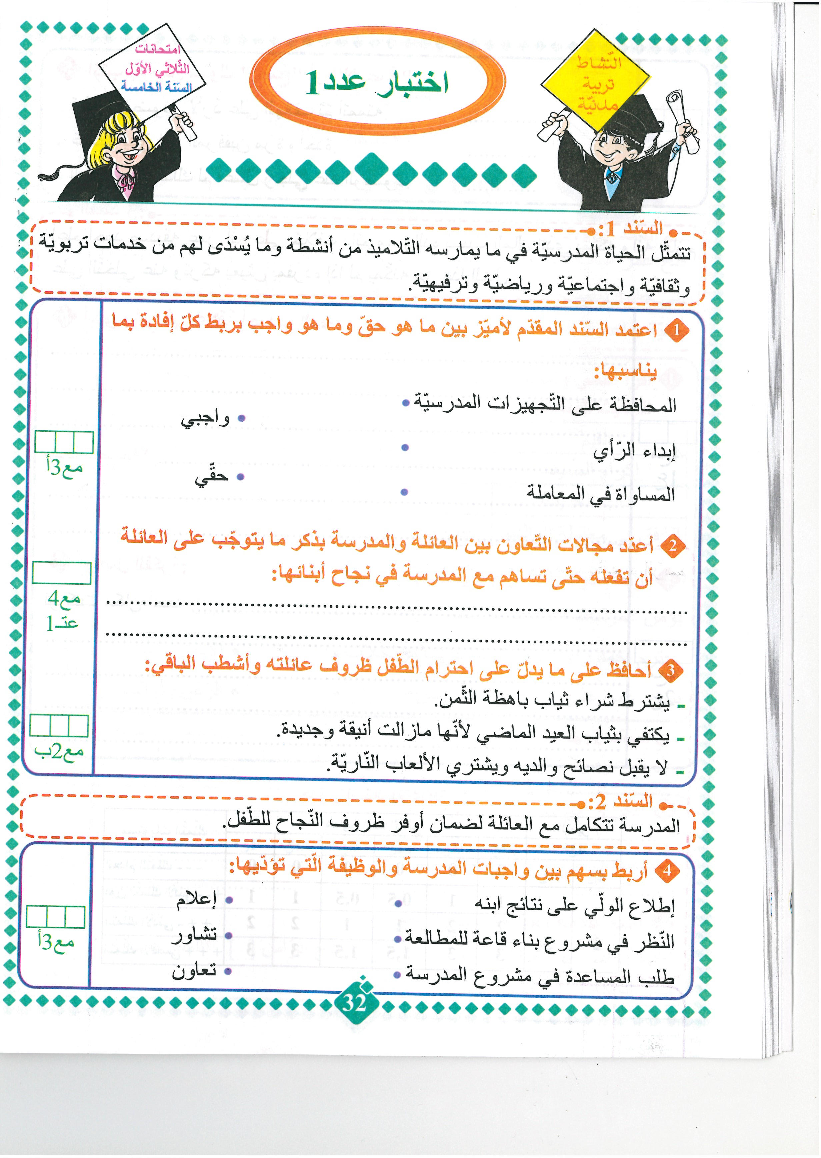 امتحانات
الثّلاثي الأوّل
السّنة الخامسة
اختبار عدد1
النّشاط
تربية
مدنيّة
السّند 1:
تتمثّل الحياة المدرسيّة في ما يمارسه التّلاميذ من أنشطة وما يُسْدَى لهم من خدمات تربويّة
وثقافيّة واجتماعيّة ورياضيّة وترفيهيّة.
1 اعتمد السّند المقدّم لأميّز بين ما هو حقّ وما هو واجب بربط كلّ إفادة بما
يناسبها:
المحافظة على التّجهيزات المدرسيّة •
• واجبي
إبداء الرّأي •
• حقّي
المساواة في المعاملة •
مع3أ
2 أعدّد مجالات التّعاون بين العائلة والمدرسة بذكر ما يتوجّب على العائلة
أن تفعله حتّى تساهم مع المدرسة في نجاح أبنائها:
مع4
عتـ1
3 أحافظ على ما يدلّ على احترام الطّفل ظروف عائلته وأشطب الباقي:
- يشترط شراء ثياب باهظة الثّمن.
- يكتفي بثياب العيد الماضي لأنّها مازالت أنيقة وجديدة.
- لا يقبل نصائح والديه ويشتري الألعاب النّاريّة.
مع2ب
السّند 2:
المدرسة تتكامل مع العائلة لضمان أوفر ظروف النّجاح للطّفل.
4 أربط بسهم بين واجبات المدرسة والوظيفة الّتي تؤدّيها:
إطلاع الولّي على نتائج ابنه • • إعلام
النّظر في مشروع بناء قاعة للمطالعة • • تشاور
طلب المساعدة في مشروع المدرسة • • تعاون
مع3أ
32